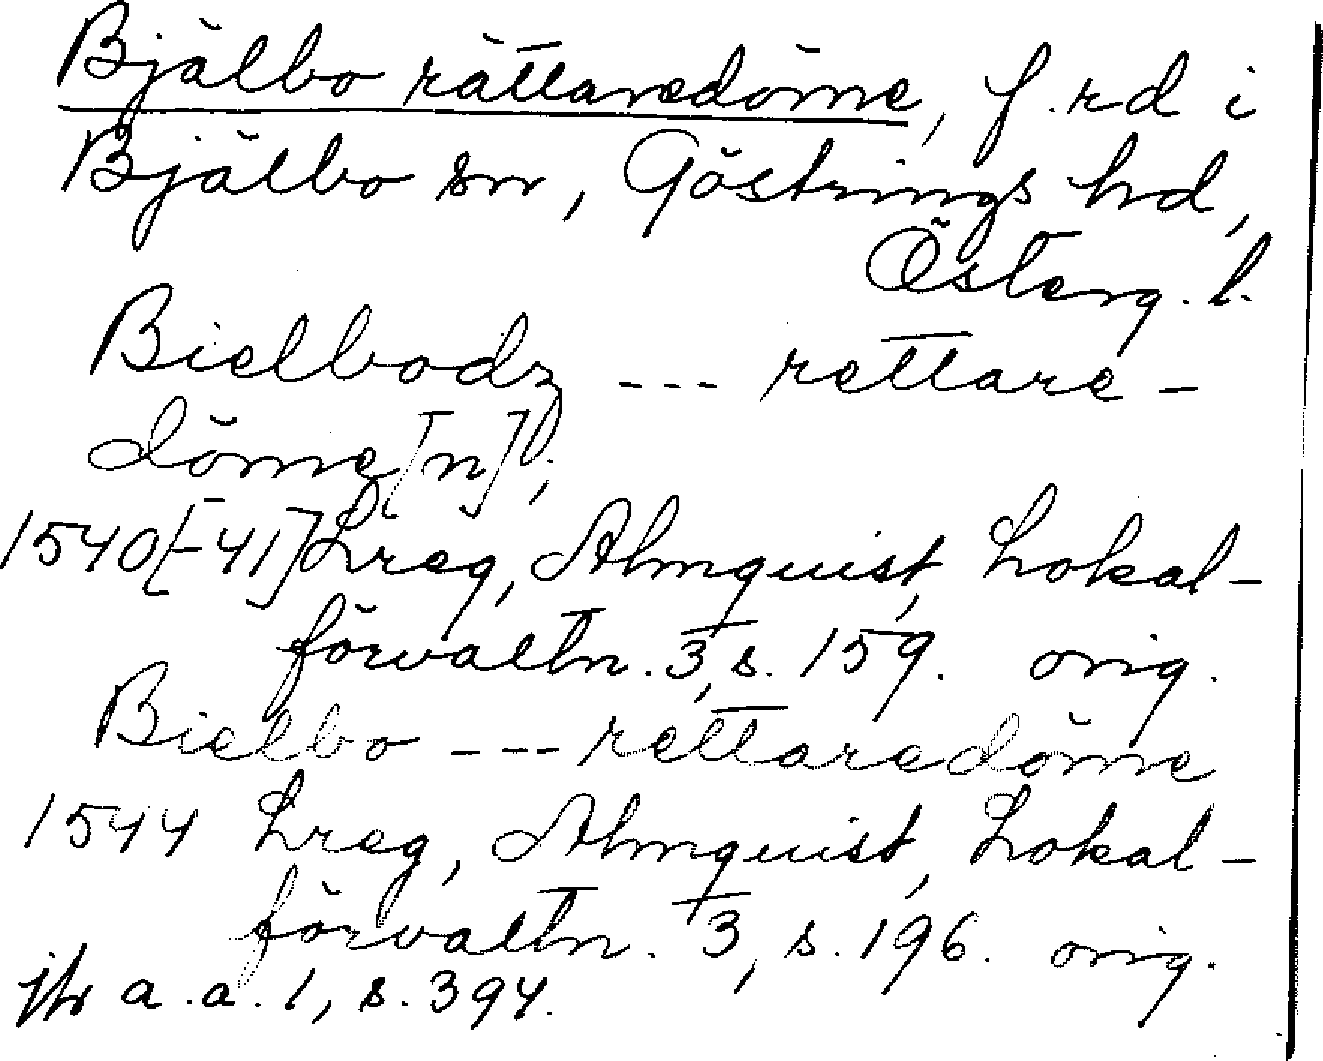 Bjälbo rättaredöme, f. rd i
Bjälbo sn, Göstrings hd,
Österg. l.
Bielbodz --- rettare-
döme[n];
1540[-41] Lreg, Almquist, Lokal-
förvaltn. 3, s. 159. orig.
Bielbo --- rettaredöme
1544 Lreg, Almquist, Lokal-
förvaltn. 3, s. 196. orig.
jfr a.a. 1, s. 394.